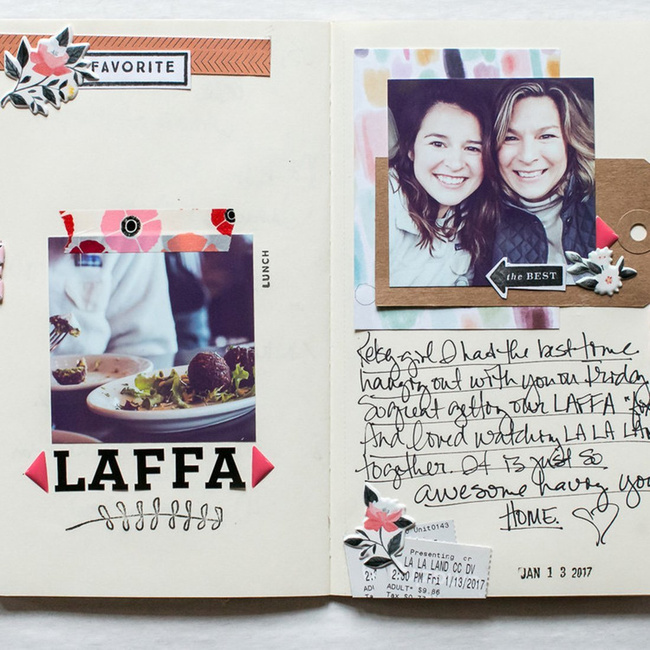 FAVORITE
LUNCH
LAFFA
the BEST
girl I had the best time
hanging out with you on Friday
So great getting our LAFFA
And loved watching LA LA LA
together. It is just so
awesome having you
HOME.
Unit0143
Presenting cr
LA LA LAND CC DV
2:30 PM Fri 1/13/2017
ADULT $9.86
Tax $0.
JAN 13 2017